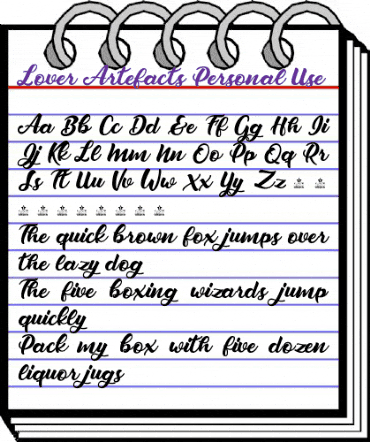 Lover Artefacts Personal Use
Aa Bb Cc Dd Ee Ff Gg Hh Ii
Jj Kk Ll Mm Nn Oo Pp Qq Rr
Ss Tt Uu Vv Ww Xx Yy Zz
The quick brown fox jumps over
the lazy dog
The five boxing wizards jump
quickly
Pack my box with five dozen
liquor jugs